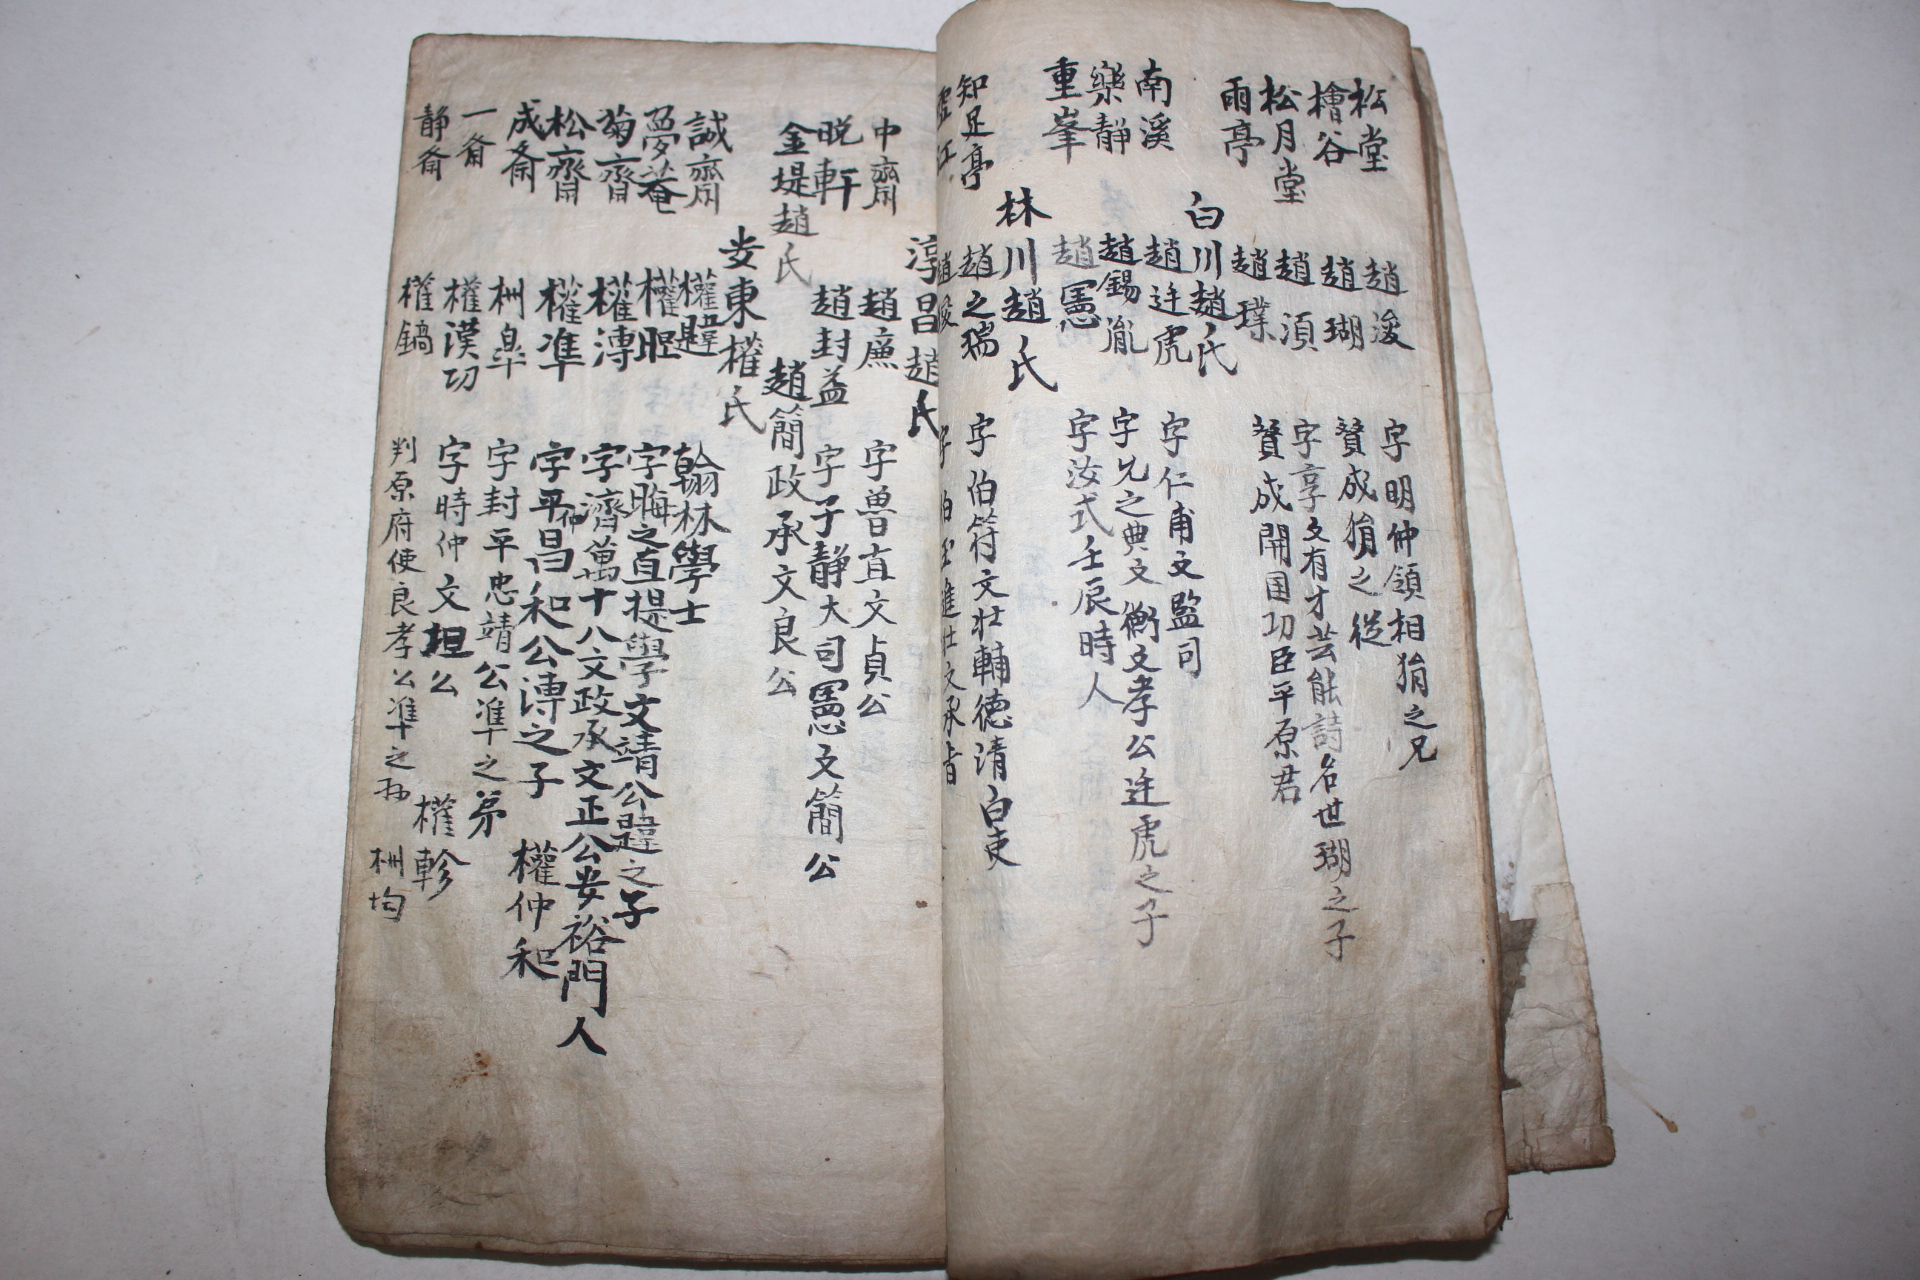 松堂 趙浚 字明仲領相狷之兄
檜谷 趙瑚 贊成狷之從
松月堂 趙湏 字亨之有才芸能詩名世瑚之子
雨亭 趙璞 贊成開国功臣平原君
白川趙氏
南溪 趙廷虎 字仁甫文監司
樂靜 趙錫胤 字胤之典文衡文孝公廷虎之子
重峯 趙憲 字汝式壬辰時人
林川趙氏
知足亭 趙之瑞 字伯符文壯輔德清白吏
虛江 趙晙 字伯玉進壯文承旨
淳昌趙氏
中齋 趙廉 字魯直文貞公
晩軒 趙封益 字子靜大司憲文簡公
金堤趙氏 趙簡政承文良公
安東權氏
誠齋 權韙 翰林學士
夢菴 權暄 字晦之直提學文靖公韙之子
菊齊 權溥 字濟萬十八文政承文正公安裕門人
松齊 權準 字平仲昌和公溥之子 權仲和
成斎 权皐 字封平忠靖公準之弟
一斎 權漢功 字時仲文坦公 權軫
靜斎 權鎬 判原府使良孝公準之孫 权均